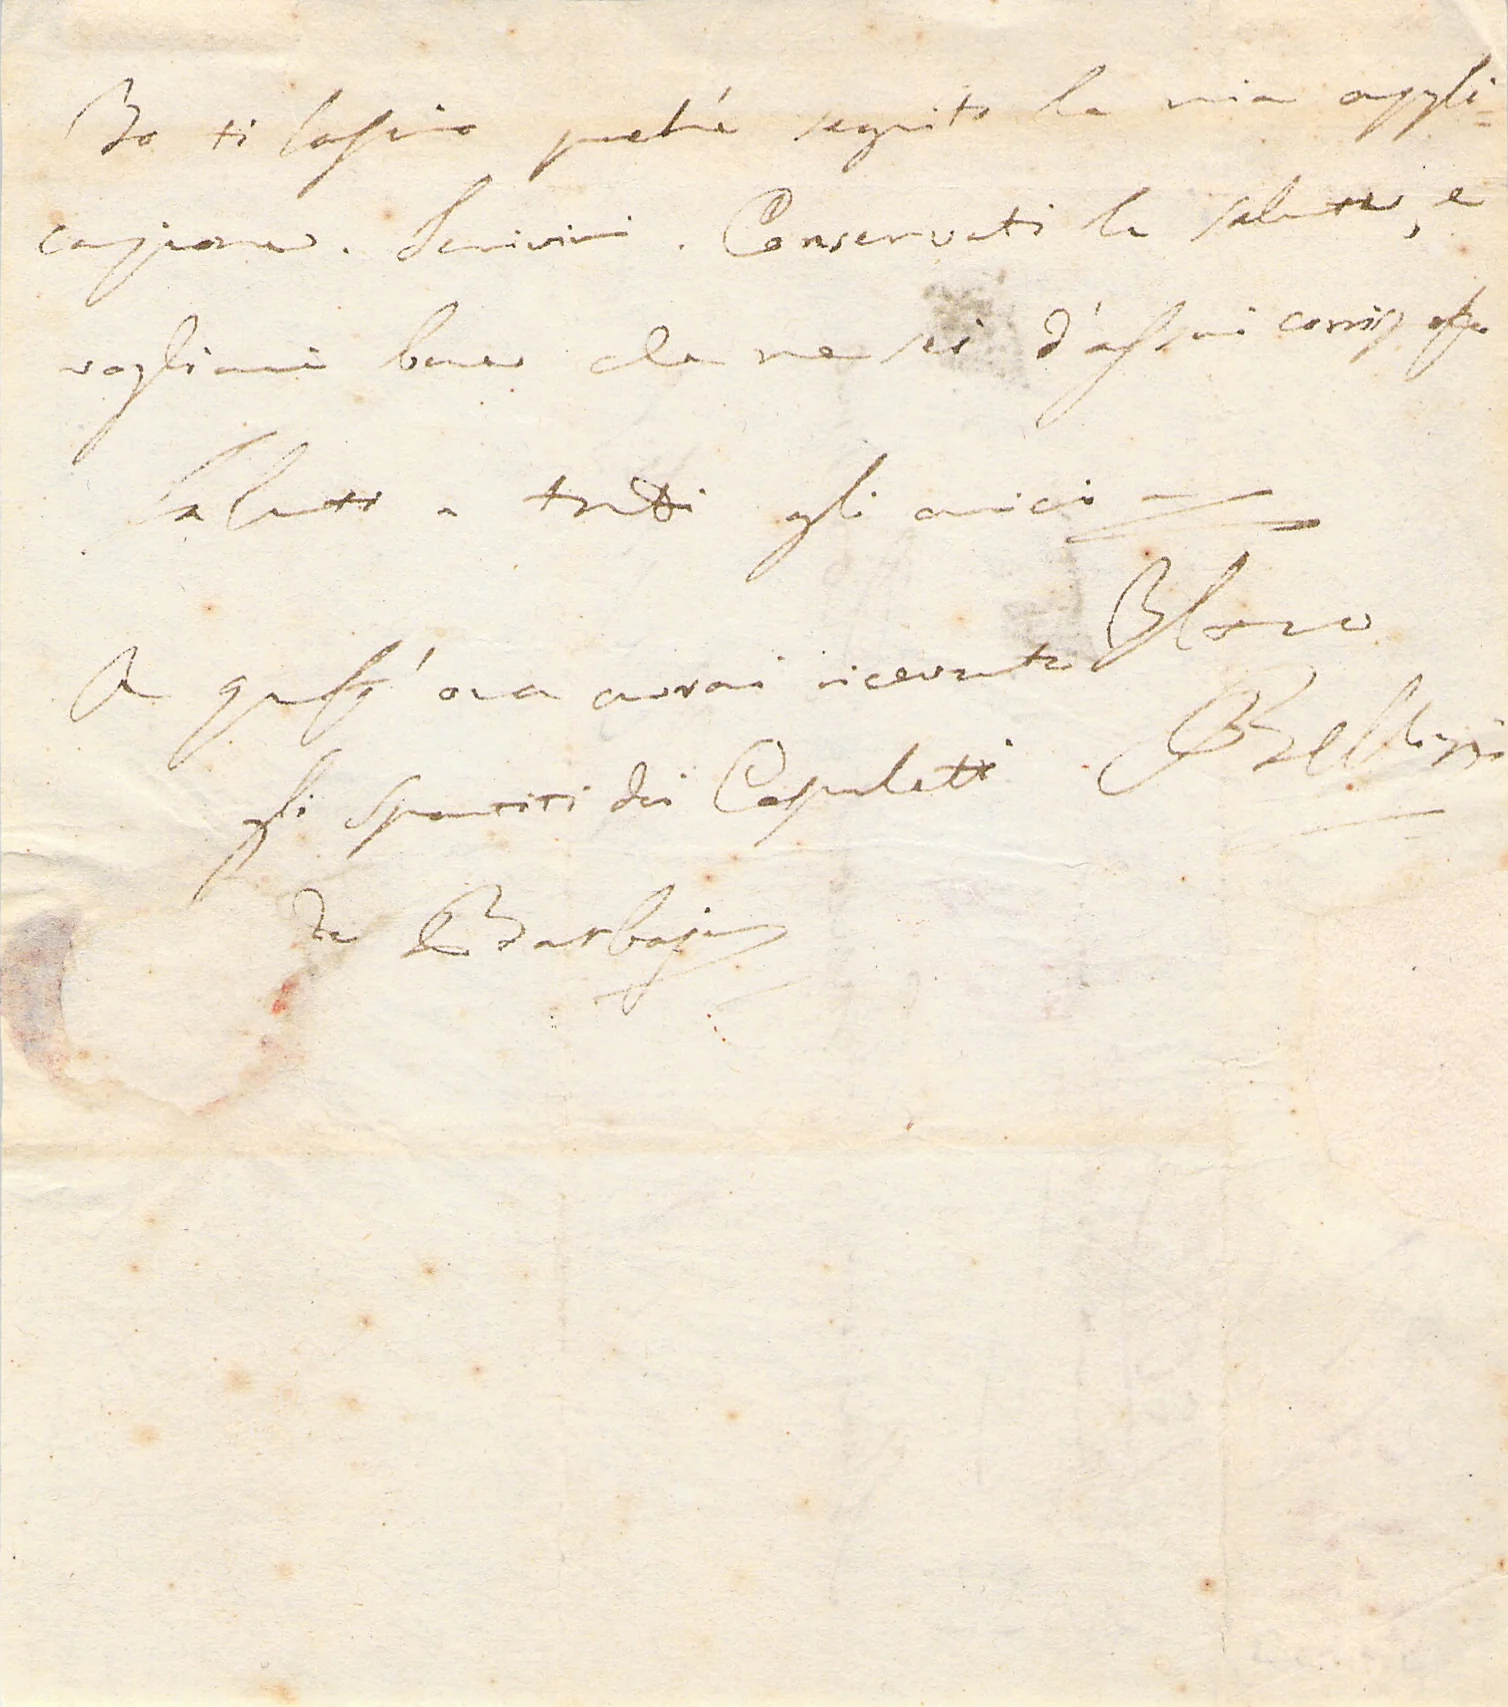 Io ti lascio perché seguito la mia appli=
cazione. Scrivimi. Conservati la salute, e
vogliami bene che ne sei d'assai corrisposto
Saluti a tutti gli amici
A quest'ora avrai ricevuto
Bellini
gli spartiti dei Capuleti
da Barbaja